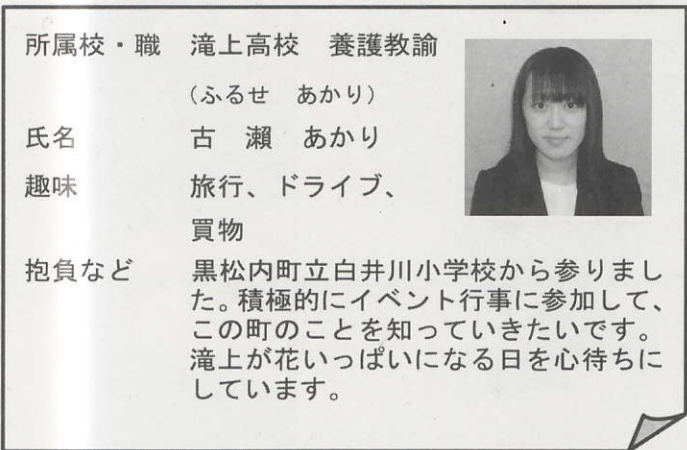 所属校・職　滝上高校　養護教諭
（ふるせ　あかり）
氏名　古　瀬　あかり
趣味　旅行、ドライブ、
買物
抱負など　黒松内町立白井川小学校から参りまし
た。積極的にイベント行事に参加して、
この町のことを知っていきたいです。
滝上が花いっぱいになる日を心待ちに
しています。